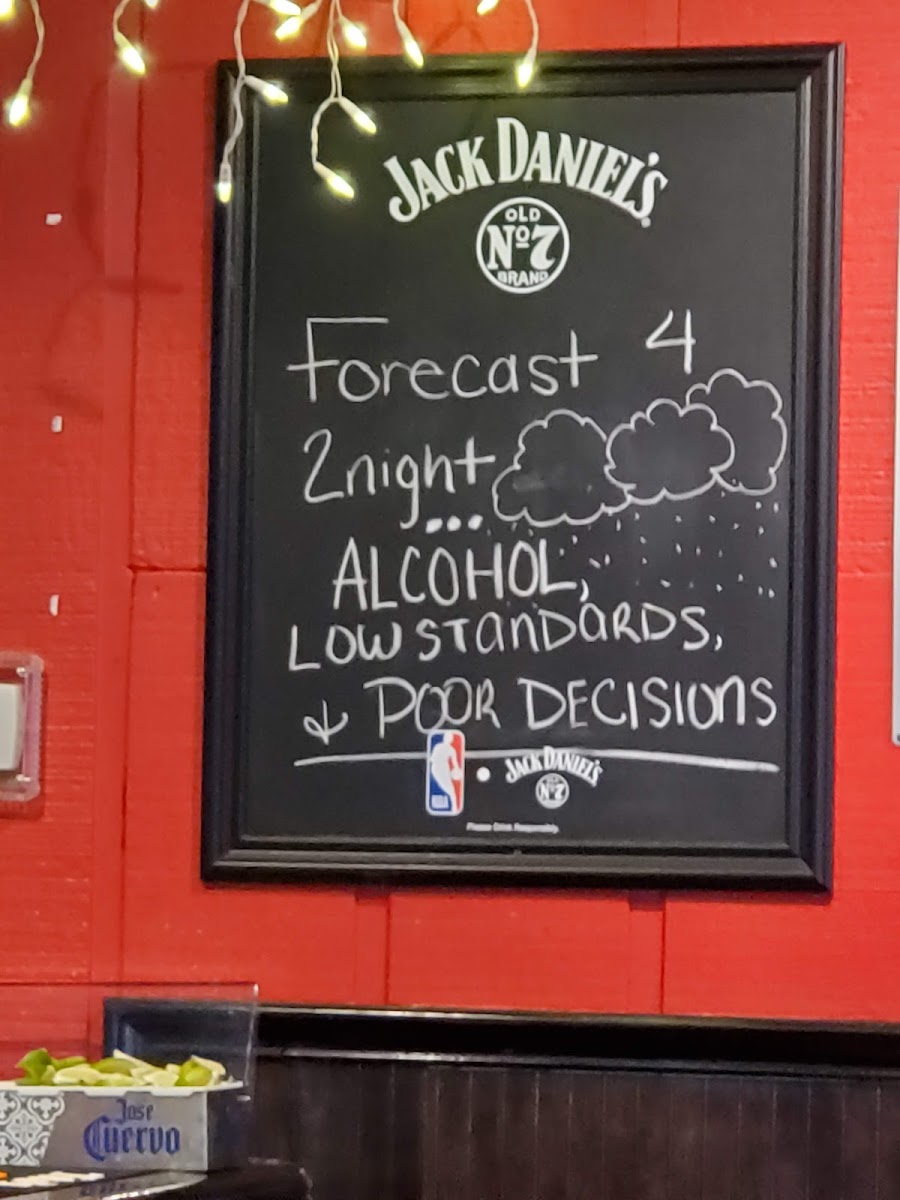 JACK DANIEL'S
OLD
Nº7
BRAND
Forecast 4
2night
...
ALCOHOL,
LOW STANDARDS,
& POOR DECISIONS
NBA
JACK DANIEL'S
Nº7
Please Drink Responsibly.
Jose
Cuervo